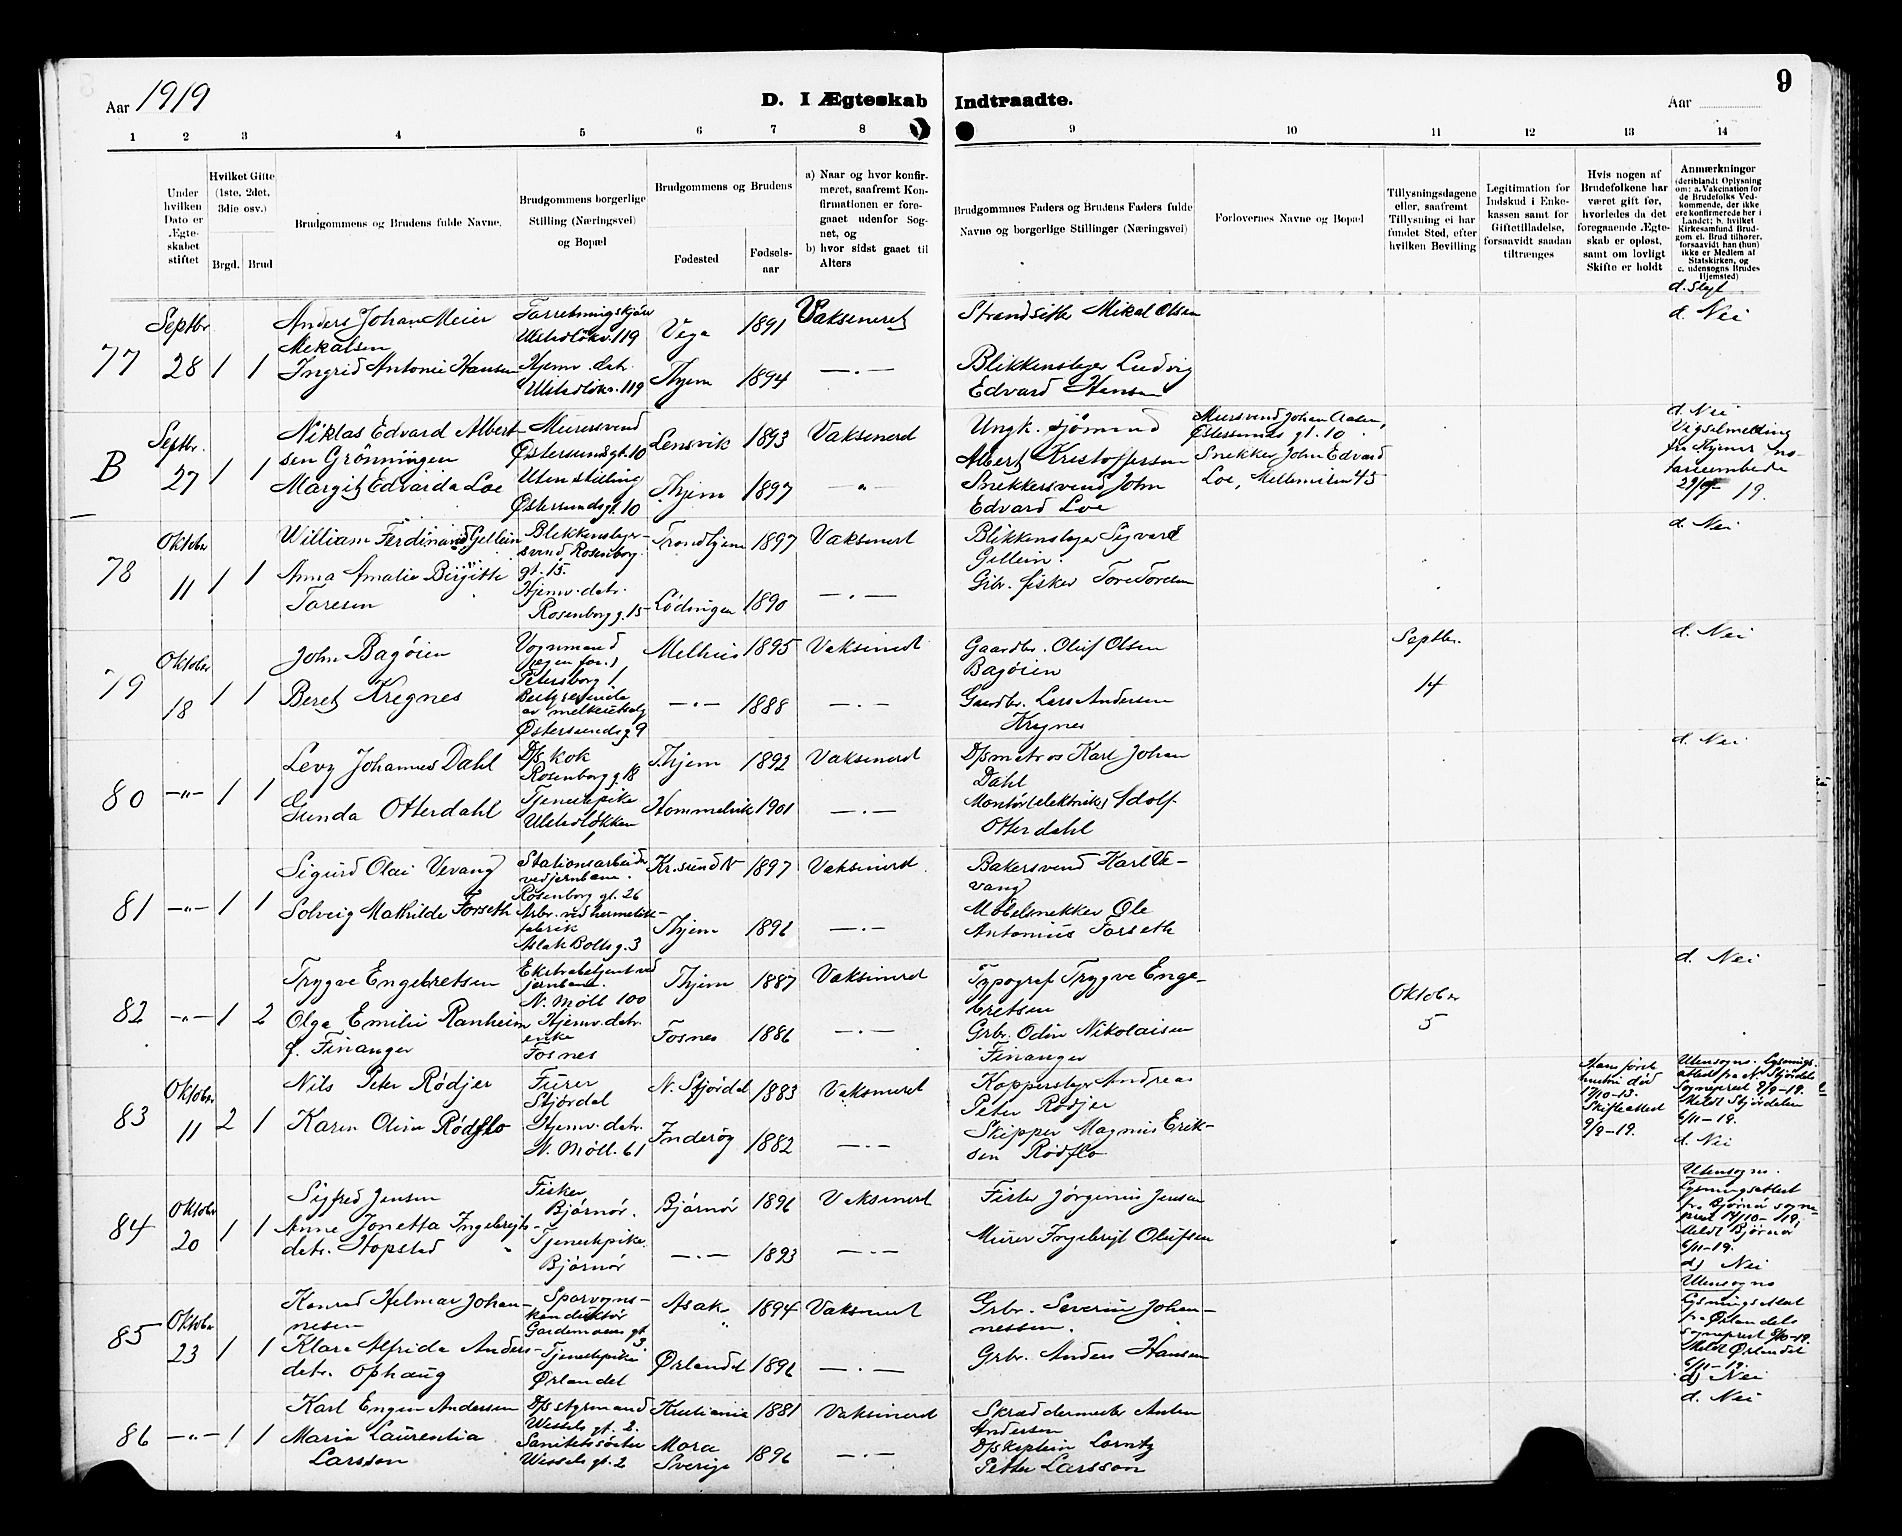 Aar 1919
D. I Ægteskab Indtraadte.
Aar
9
1 2 3 4 5 6 7 8 9 10 11 12 13 14
Under hvilken Dato er Ægteskabet stiftet
Hvilket Gifte (1ste, 2det, 3die osv.)
Brgd. Brud
Brudgommens og Brudens fulde Navne.
Brudgommens borgerlige Stilling (Næringsvei) og Bopæl
Brudgommens og Brudens
Fødested
Fødselsaar
a) Naar og hvor konfirmeret, saafremt Konfirmationen er foregaaet udenfor Sognet, og
b) hvor sidst gaaet til Alters
Brudgommnes Faders og Brudens Faders fulde Navne og borgerlige Stillinger (Næringsvei)
Forlovernes Navne og Bopæl
Tillysningsdagene eller, saafremt Tillysning ei har fundet Sted, efter hvilken Bevilling
Legitimation for Indskud i Enkekassen samt for Giftetilladelse, forsaavidt saadan tiltrænges
Hvis nogen af Brudefolkene har været gift før, hvorledes da det foregaaende Ægteskab er opløst, samt om lovligt Skifte er holdt
Anmærkninger (deriblandt Oplysning om: a. Vakcination for de Brudefolks Vedkommende, der ikke ere konfirmerede her i Landet; b. hvilket Kirkesamfund Brudgom ei. Brud tilhører, forsaavidt han (hun) ikke er Medlem af Statskirken, og c. udensogns Brudes Hjemsted)
d. Slegt
77
Septbr. 28
1 1
Anders Johan Meier
Mekalsen
Ingrid Antonie Hansen
Ulstadløkv. 119
Hjemv. datr.
Ulstadløkv. 119
Vega 1891 Vaksineret
Thjem 1894 —"—
Strandsitter Mikal Olsen
Blikkenslager Ludvig
Edvard Hansen
d. Nei
B
Septbr. 27
1 1
Niklas Edvard Albert-
sen Grönningen
Margit Edvarda Loe
Murersvend
Østersundsgt. 10
Uten stilling
Østersundsgt. 10
Lensvik 1893 Vaksinerd
Thjem 1897 "
Ungk. sjømand
Albert Kristoffersen
Snekkersvend John
Edvard Loe
Mursvend Johan Aalen,
Østersunds gt. 10.
Snekker John Edvard
Loe, Mellemilen 45
d. Nei
Vigselmelding
fra Thjems no-
tariembede
29/9 19.
78
Oktober 11
1 1
William Ferdinand Gellein
Anna Amalie Birgitte
Toresen
Blikkenslager-
svend Rosenborg
gt. 15.
Hjemv. datr.
Rosenborg g. 15
Trondhjem 1897 Vaksinerd
Lödingen 1890 —"—
Blikkenslager Sigvard
Gellein.
Gbr. fisker Tore Toresen
d. Nei
79
Oktober 18
1 1
John Bagöien
Beret Kregnes
Vognmand
(egen for.)
Petersborg 1
Bestyrerinde
av melkeutsalg
Østersunds g. 9
Melhus 1895 Vaksinerd
—"— 1888 —"—
Gaardbr. Oluf Olsen
Bagöien
Gaardbr. Lars Andersen
Kregnes
Septbr.
14
d. Nei
80
—"—
1 1
Levy Johannes Dahl
Gunda Otterdahl
D/s kok
Rosenborg g. 18
Tjenestepike
Ulstadløkken
1
Thjem 1892 Vaksinerd
Hommelvik 1901 —"—
D/s matros Karl Johan
Dahl
Montør (elektrik.) Adolf
Otterdahl
d. Nei
81
—"—
1 1
Sigurd Olai Vevang
Solveig Mathilde Forseth
Stationsarbeider
ved jernbane.
Rosenborg gt. 26
Arbr. ved hermetik-
fabrik
Aslak Bolts g. 3
Kr.sund N 1897 Vaksinerd.
Thjem 1896 —"—
Bakersvend Karl Ve-
vang
Møbelsnekker Ole
Antonius Forseth
82
—"—
1 2
Trygve Engebretsen
Olga Emilie Ranheim
f. Finanger
Ekstrabetjent ved
jernbane.
N. Möll 100
Hjemv. datr.
enke
Fosnes
Thjem 1887 Vaksinerd
Fosnes 1886 —"—
Typograf Trygve Enge-
bretsen
Grbr. Odin Nikolaisen
Finanger
Oktober
5
d. Nei
83
Oktober 11
2 1
Nils Peter Rödjer
Karen Oline Rödflo
Furer
Stjördal
Hjemv. datr.
N. Möll. 61
N. Stjördal 1883 Vaksinerd
Inderöy 1882 —"—
Kopperslager Andreas
Peter Rödjer
Skipper Magnus Erik-
sen Rödflo
Hans förste
hustru död
17/10-13.
Skifteattest
9/9-19.
Utensogns. Lysnings-
attest fra N. Stjördals
Sogneprest 9/9-19.
Meldt Stjördalen
6/11-19.
d. Nei
84
Oktober 20
1 1
Sigfred Jensen
Anne Jonetta Ingebrigts-
datr. Hopstad
Fisker
Bjørnør.
Tjenestepike.
Bjørnør
Bjørnør 1896 Vaksinerd
—"— 1893 —"—
Fisker Jörgenius Jensen
Murer Ingebrigt Olufsen
Utensogns.
Lysningsattest
fra Bjørnør sogne-
prest 14/10-19.
Meldt Bjørnør
6/11-19.
d) Nei
85
Oktober 23
1 1
Konrad Helmar Johan-
nesen
Klara Alfrida Anders-
datr. Ophaug
Sporvogns-
konduktør
Gardemoens gt. 3
Tjenestepike
Ørlandet
Asak 1894 Vaksinerd
Ørlandet 1896 —"—
Grbr. Severin Johan-
nessen.
Grbr. Anders Hansen
Utensogns
Lysningsattest
fra Ørlandets
sogneprest 9/10-19.
Meldt Ørlandet
6/11-19.
d) Nei
86
—"—
1 1
Karl Engen Andersen
Maria Laurentia
Larsson
D/s styrmand
Wessels gt. 2.
Sanitetssöster
Wessels gt. 2
Kristiania 1881 Vaksinerd
Mora
Sverige 1896 —"—
Skræddermester Anton
Andersen
D/s kaptein Lorntz
Petter Larsson
d. Nei